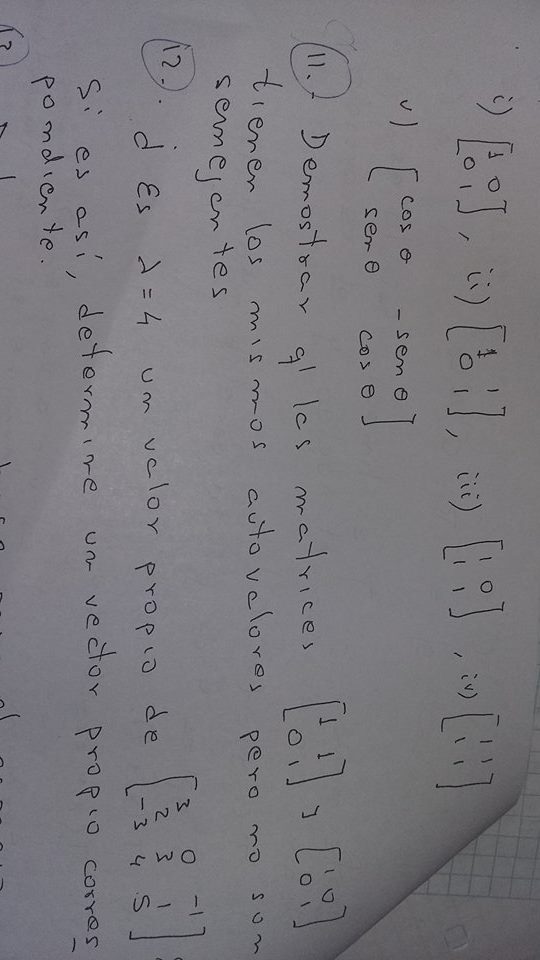 i) [1 0
0 1], ii) [1 1
0 1], iii) [1 0
1 1], iv) [1 1
1 1]
v) [cos θ -sen θ
sen θ cos θ]
11. Demostrar q' las matrices [1 1
0 1] y [1 0
0 1]
tienen los mismos autovalores pero no son
semejantes
12. ¿ Es λ = 4 un valor propio de [3 0 -1
2 3 1
-3 4 5]
Si es así, determine un vector propio corres
pondiente.
13